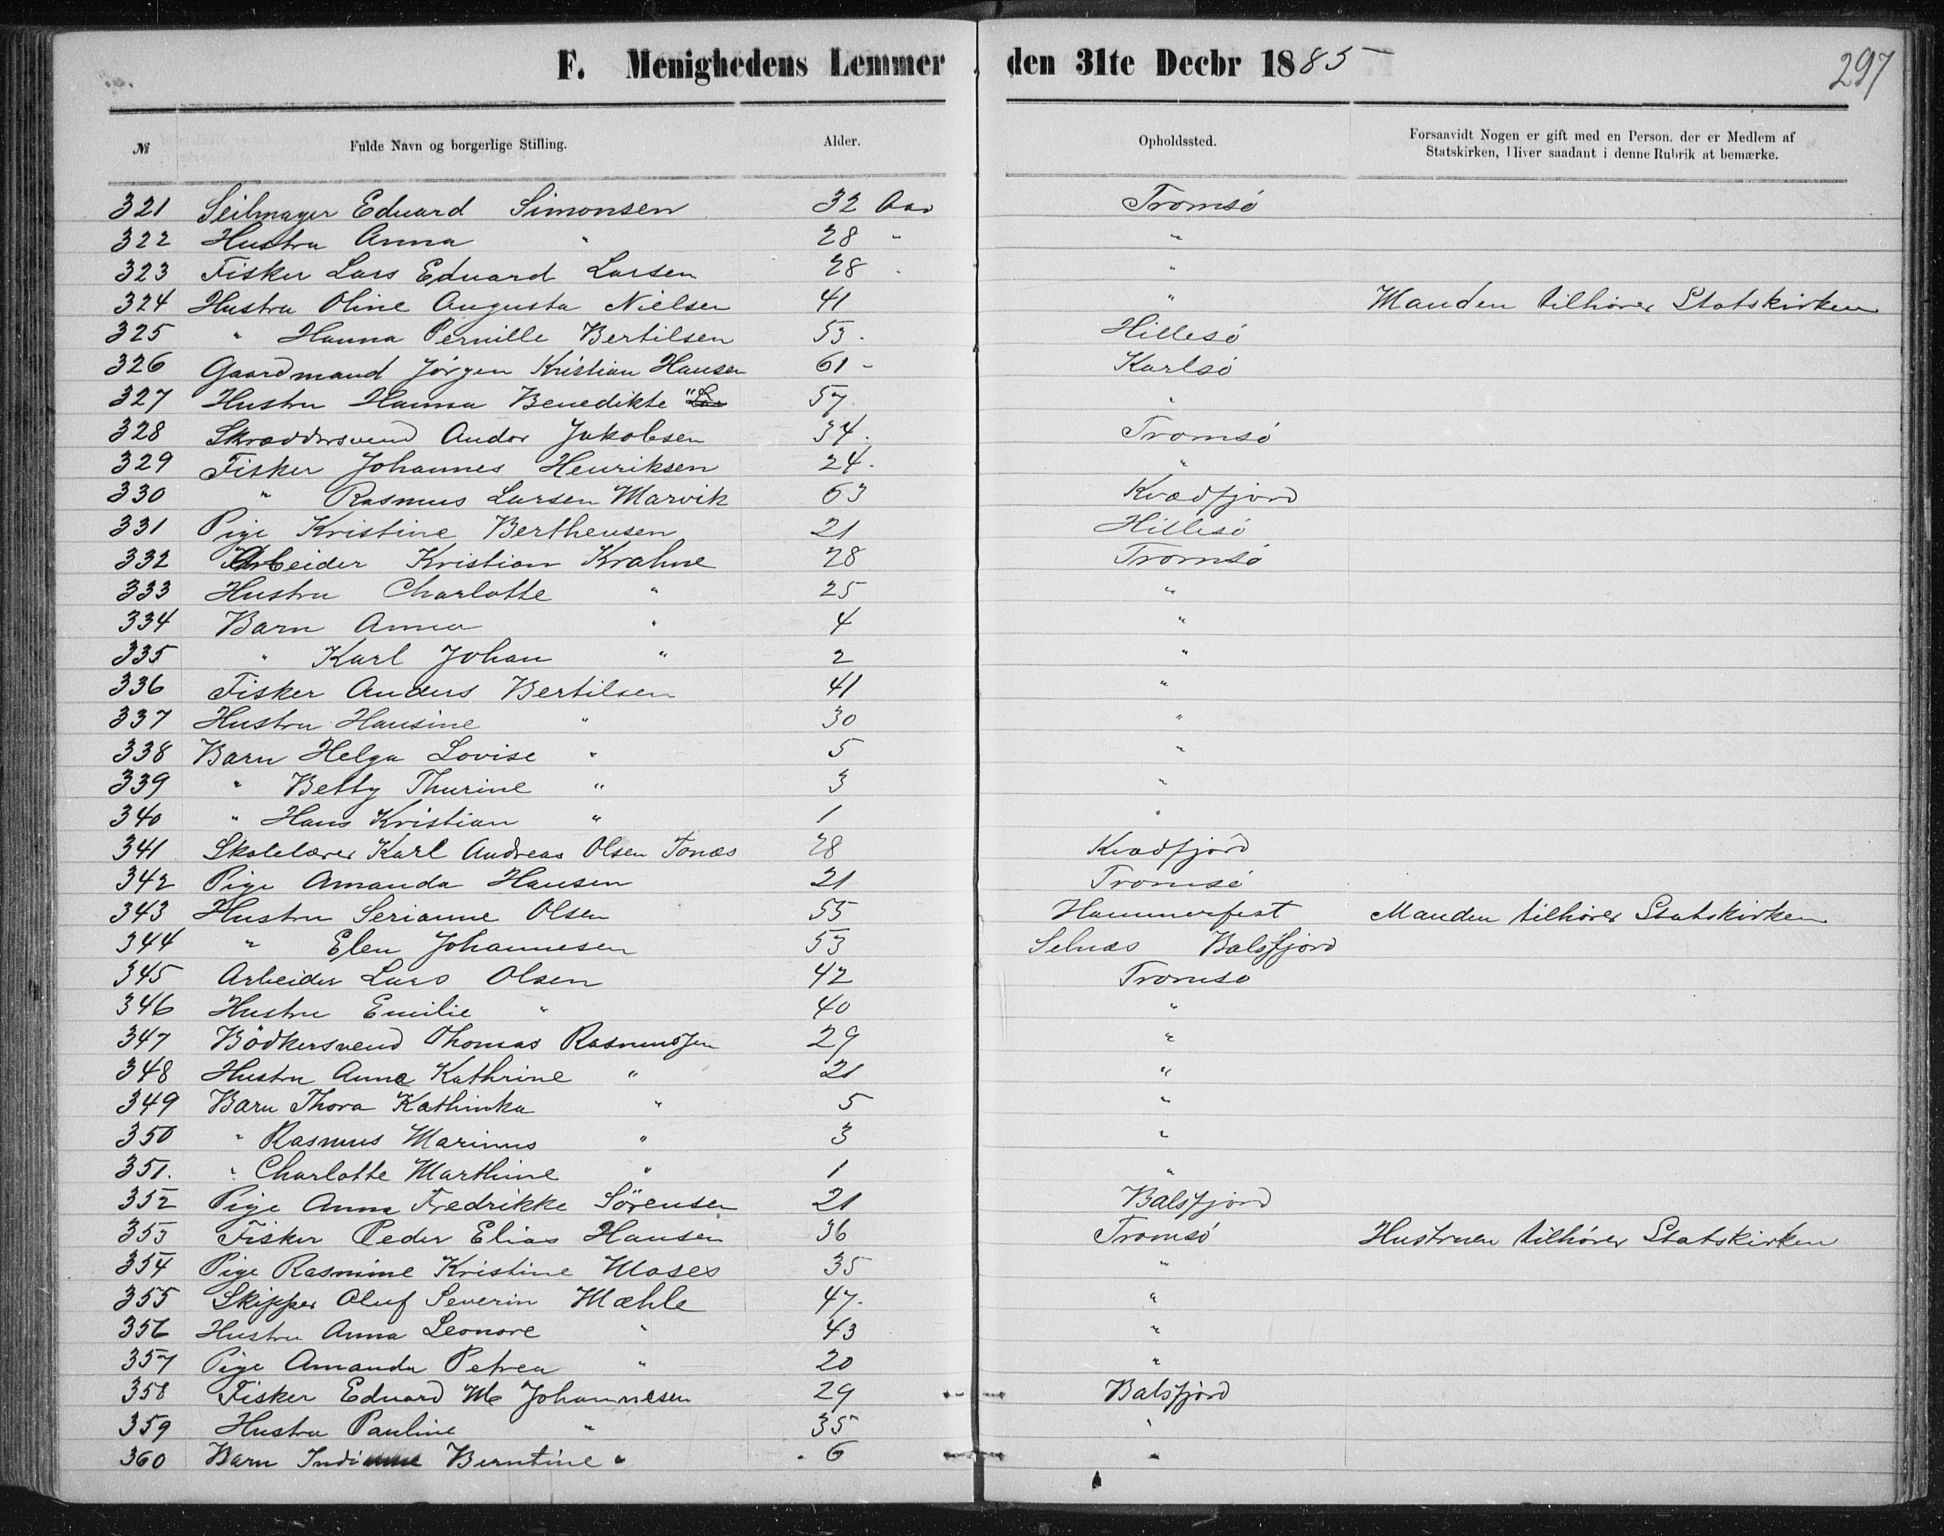 F. Menighedens Lemmer den 31te Decbr 1885 297
№ Fulde Navn og borgerlige Stilling. Alder. Opholdssted. Forsaavidt Nogen er gift med en Person, der er Medlem af
Statskirken, bliver saadant i denne Rubrik at bemærke.
321 Seilmager Eduard Simonsen 32 Aar Tromsø
322 Hustru Anna " 28 " "
323 Fisker Lars Eduard Larsen 28 "
324 Hustru Oline Augusta Nielsen 41 " Manden tilhører Statskirken
325 " Hanna Pernille Bertilsen 53 Hillesø
326 Gaardmand Jørgen Kristian Hansen 61 Karlsø
327 Hustru Hanna Benedikte " 57 "
328 Skræddersvend Andor Jakobsen 34 Tromsø
329 Fisker Johannes Henriksen 24 "
330 " Rasmus Larsen Marvik 63 Kvædfjord
331 Pige Kristine Bertheusen 21 Hillesø
332 Arbeider Kristian Krahne 28 Tromsø
333 Hustru Charlotte " 25 "
334 Barn Anna " 4 "
335 " Karl Johan " 2 "
336 Fisker Anders Bertilsen 41 "
337 Hustru Hansine " 30 "
338 Barn Helga Lovise " 5 "
339 " Betty Thurine " 3 "
340 " Hans Kristian " 1 "
341 Skolelærer Karl Andreas Olsen Tonæs 28 Kvædfjord
342 Pige Amanda Hansen 21 Tromsø
343 Hustru Serianne Olsen 55 Hammerfest Manden tilhører Statskirken
344 " Elen Johannesen 53 Selnæs Balsfjord
345 Arbeider Lars Olsen 42 Tromsø
346 Hustru Emilie " 40 "
347 Bödkersvend Thomas Rasmussen 29 "
348 Hustru Anne Kathrine " 21 "
349 Barn Thora Kathinka " 5 "
350 " Rasmus Marinus " 3 "
351. " Charlotte Marthine " 1 "
352 Pige Anna Fredrikke Sörensen 21 Balsfjord
353 Fisker Peder Elias Hansen 36 Tromsø Hustruen tilhører Statskirken
354 Pige Rasmine Kristine Moses 35 "
355 Skipper Oluf Severin Mæhle 47 "
356 Hustru Anna Leonore " 43 "
357 Pige Amanda Petrea " 20 "
358 Fisker Eduard M Johannesen 29 Balsfjord
359 Hustru Pauline " 35 "
360 Barn Berntine " 6 "